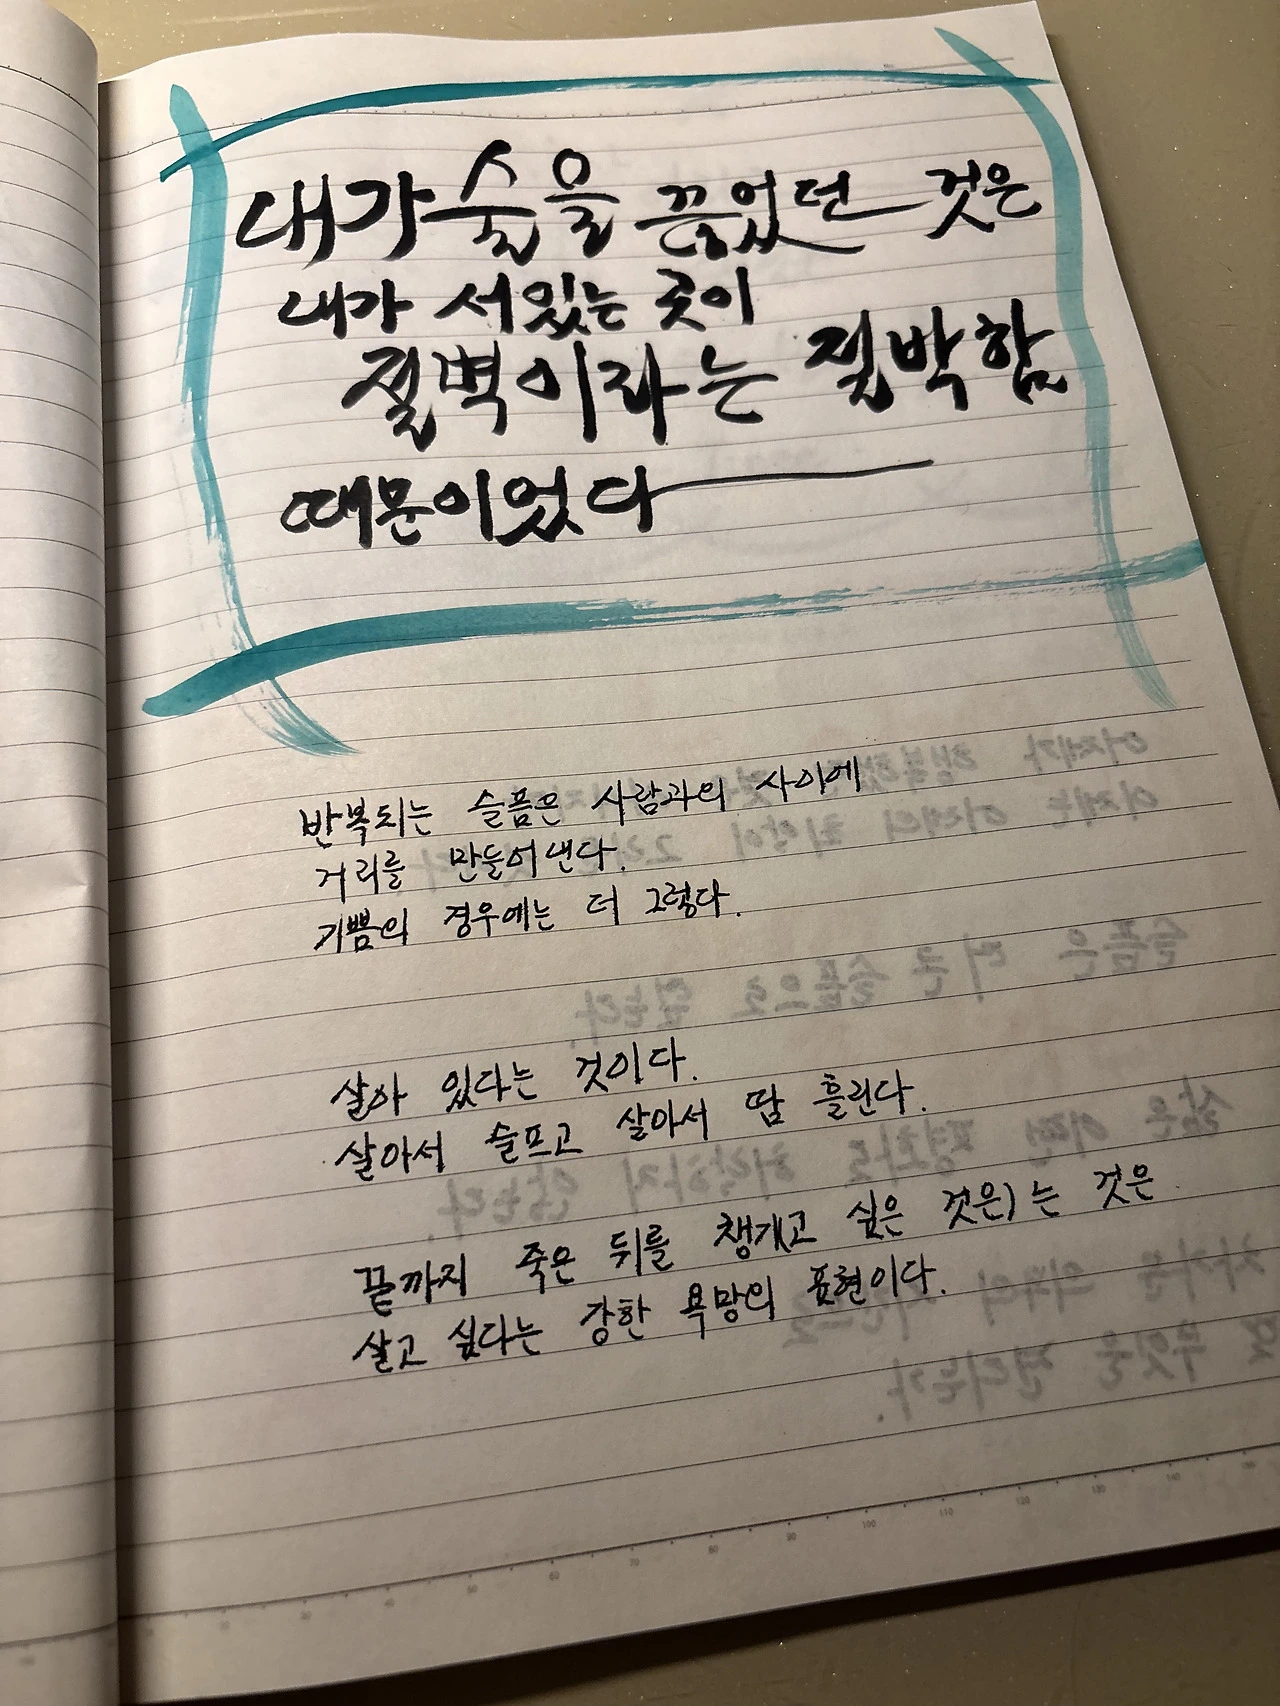 내가 술을 끊었던 것은
내가 서있는 곳이
절벽이라는 절박함
때문이었다
반복되는 슬픔은 사람과의 사이에
거리를 만들어낸다.
기쁨의 경우에는 더 그렇다.
살아 있다는 것이다.
살아서 슬프고 살아서 땀 흘린다.
끝까지 죽은 뒤를 챙기고 싶은 것은 는 것은
살고 싶다는 강한 욕망의 표현이다.